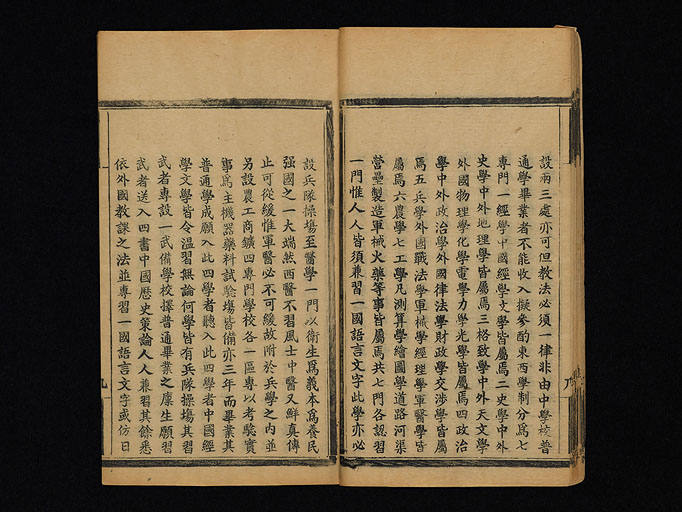 設兩三處亦可但教法必須一律非由中學校普
通學畢業者不能收入擬參酌東西學制分爲七
專門一經學中國經學文學皆屬焉二史學中外
史學中外地理學皆屬焉三格致學中外天文學
外國物理學化學電學力學光學皆屬焉四政治
學中外政治學外國律法學財政學交涉學皆屬
焉五兵學外國戰法學軍械學經理學軍醫學皆
屬焉六農學七工學凡測算學繪圖學道路河渠
營壘製造軍械火藥等事皆屬焉共七門各認習
一門惟人人皆須兼習一國語言文字此學亦必
設兵隊操場至醫學一門以衛生爲義本爲養民
强國之一大端然西醫不習風土中醫又鮮真傳
止可從緩惟軍醫必不可緩故附於兵學之内並
另設農工商鑛四專門學校各一區專以考驗實
事爲主機器藥料試驗場皆備亦三年而畢業其
普通學成願入此四學者聽入此四學者中國經
學文學皆令温習無論何學皆有兵隊操場其習
武者專設一武備學校擇普通畢業之廩生願習
武者送入四書中國歷史策論人人兼習其餘悉
依外國教課之法並專習一國語言文字或仿日
九